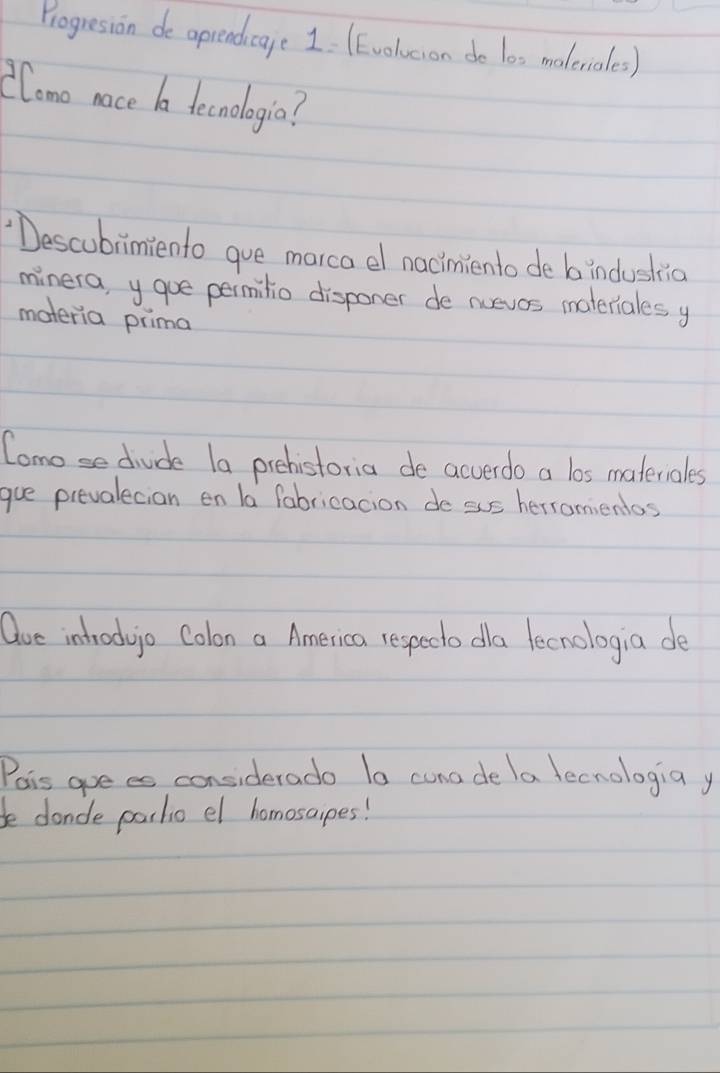 Progresión de aprendizaje 1- (Evolucion de los materiales)
¿Como nace la tecnologia?
Descubrimiento que marca el nacimiento de la industria
minera, y que permitio disponer de nuevos materiales y
materia prima
Como se divide la prehistoria de acuerdo a los materiales
que prevalecian en la fabricacion de sus herramientas
Que introdujo Colon a America respecto dla tecnologia de
Pais que es considerado la cuna de la tecnologia y
de donde partio el homosaipes!